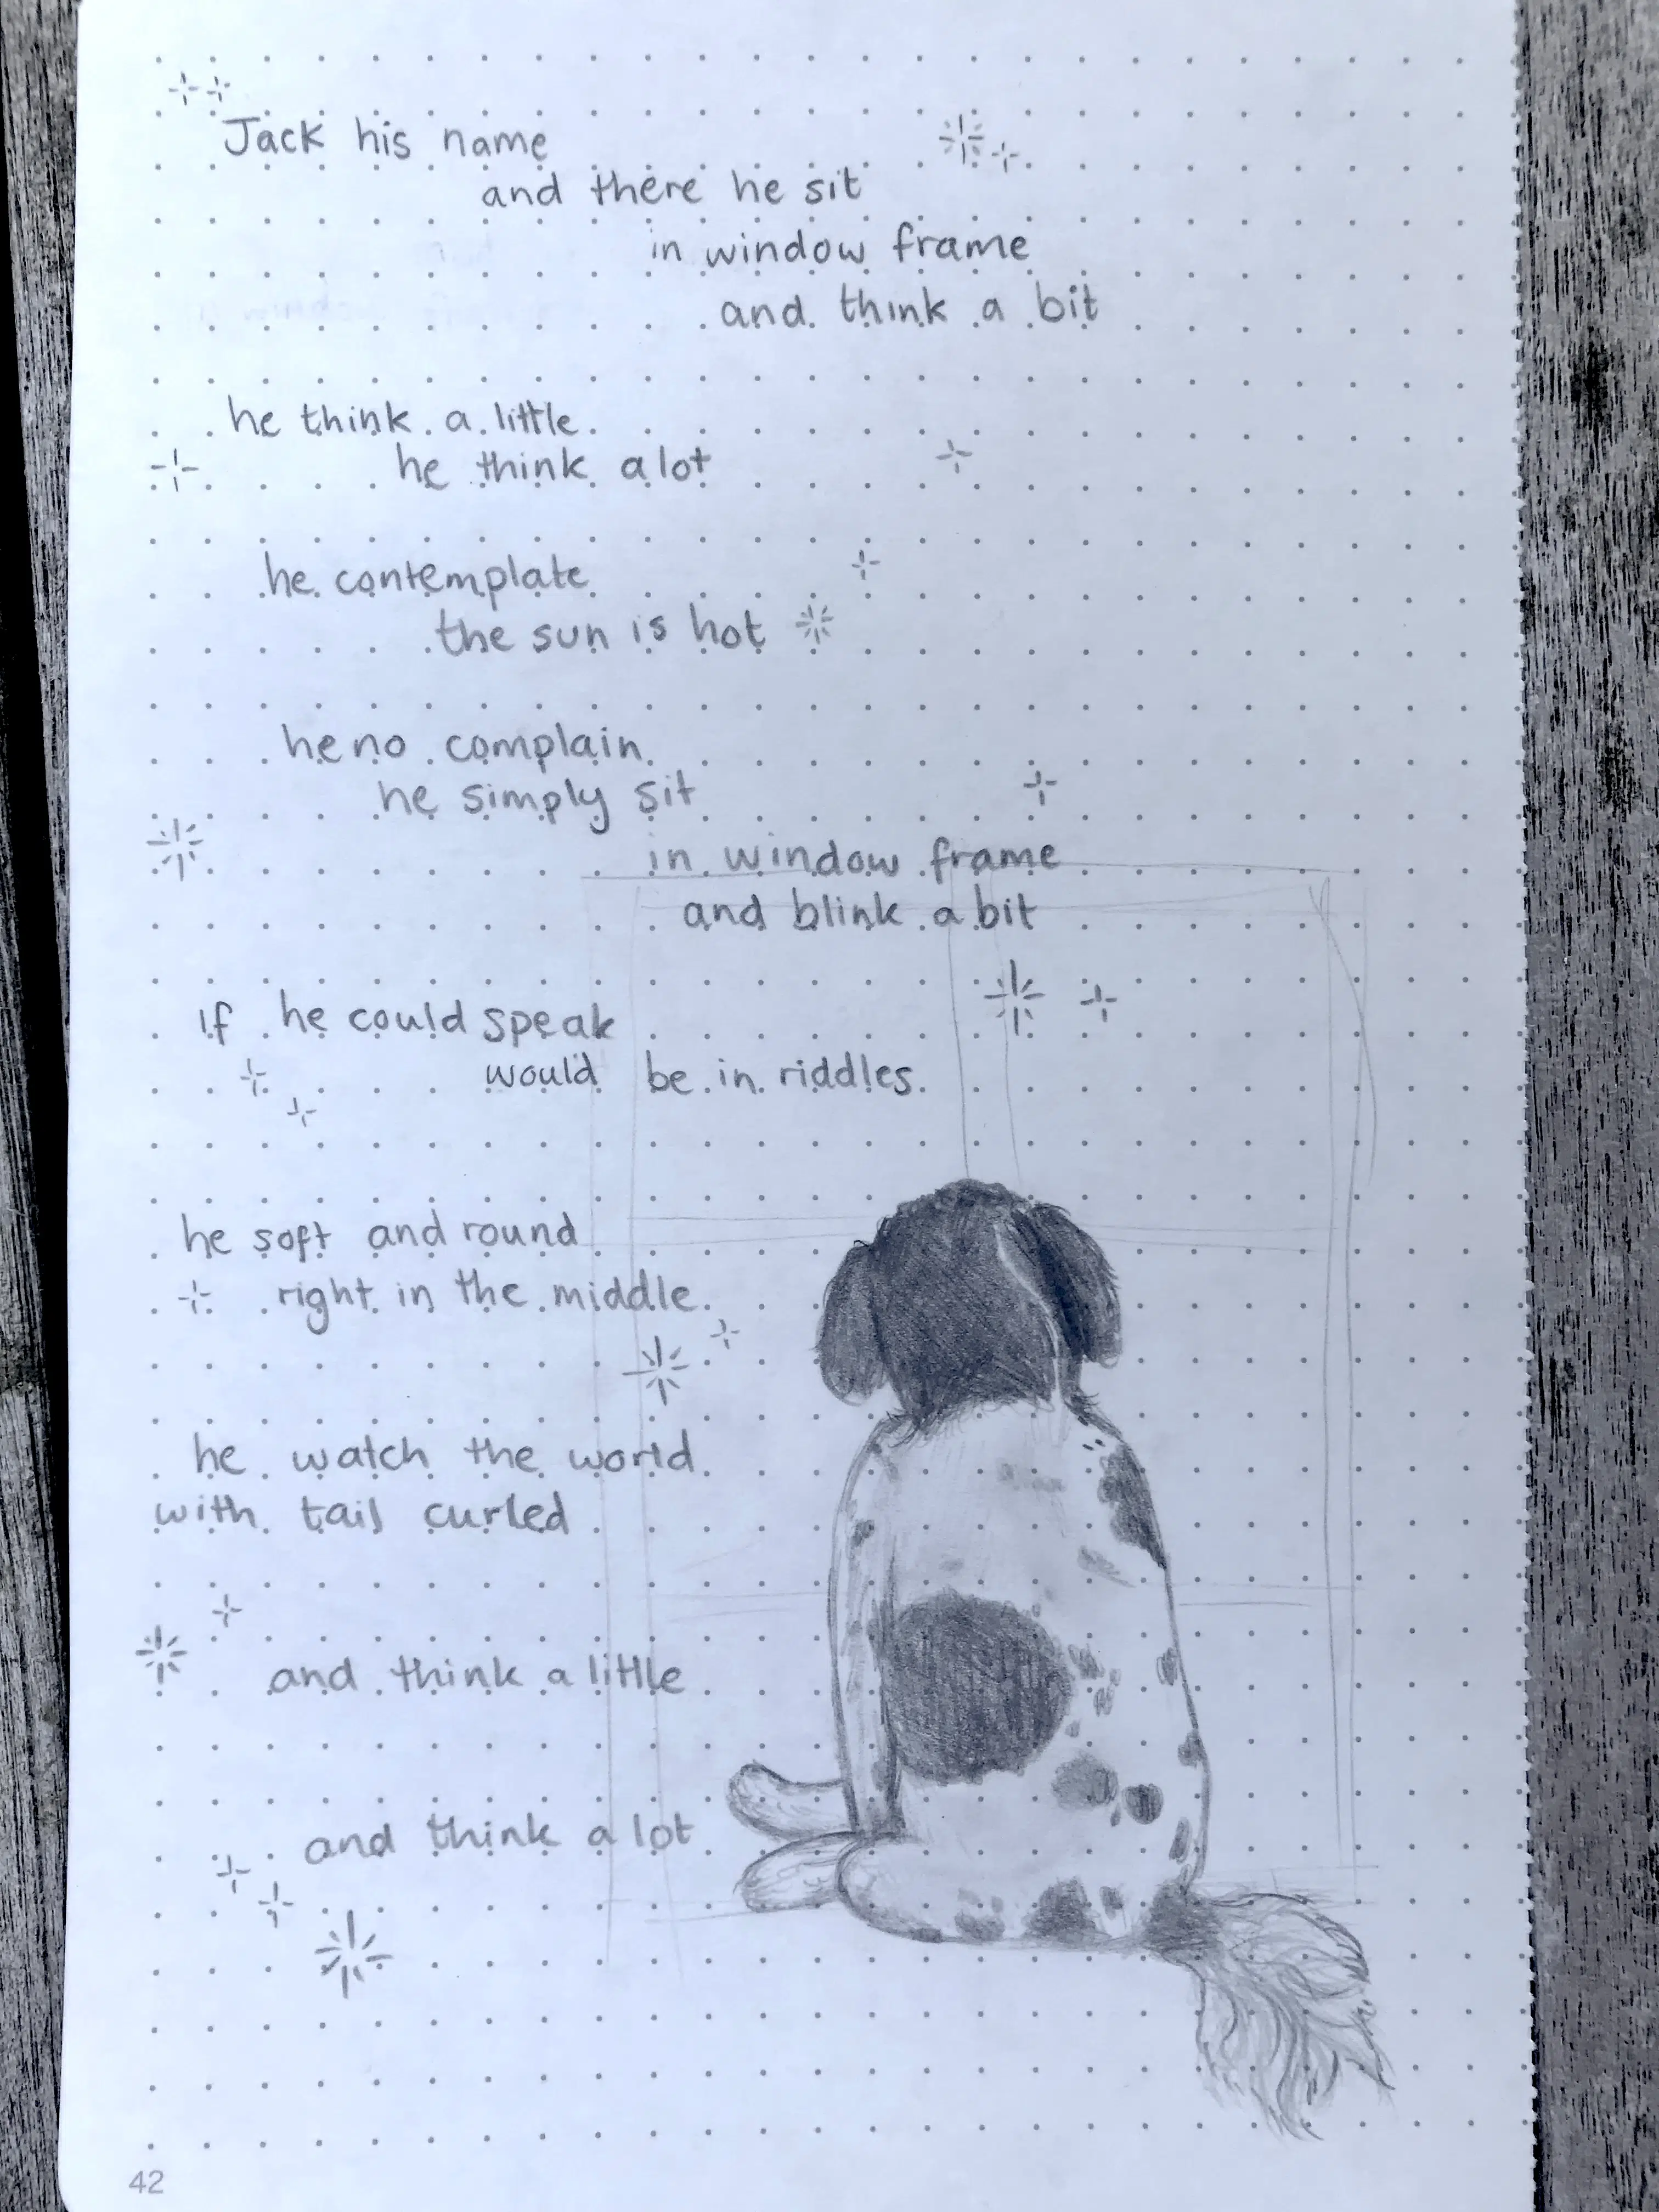 Jack his name
and there he sit
in window frame
and think a bit
he think a little
he think a lot
he contemplate
the sun is hot
he no complain
he simply sit
in window frame
and blink a bit
if he could speak
would be in riddles
he soft and round
right in the middle
he watch the world
with tail curled
and think a little
and think a lot
42